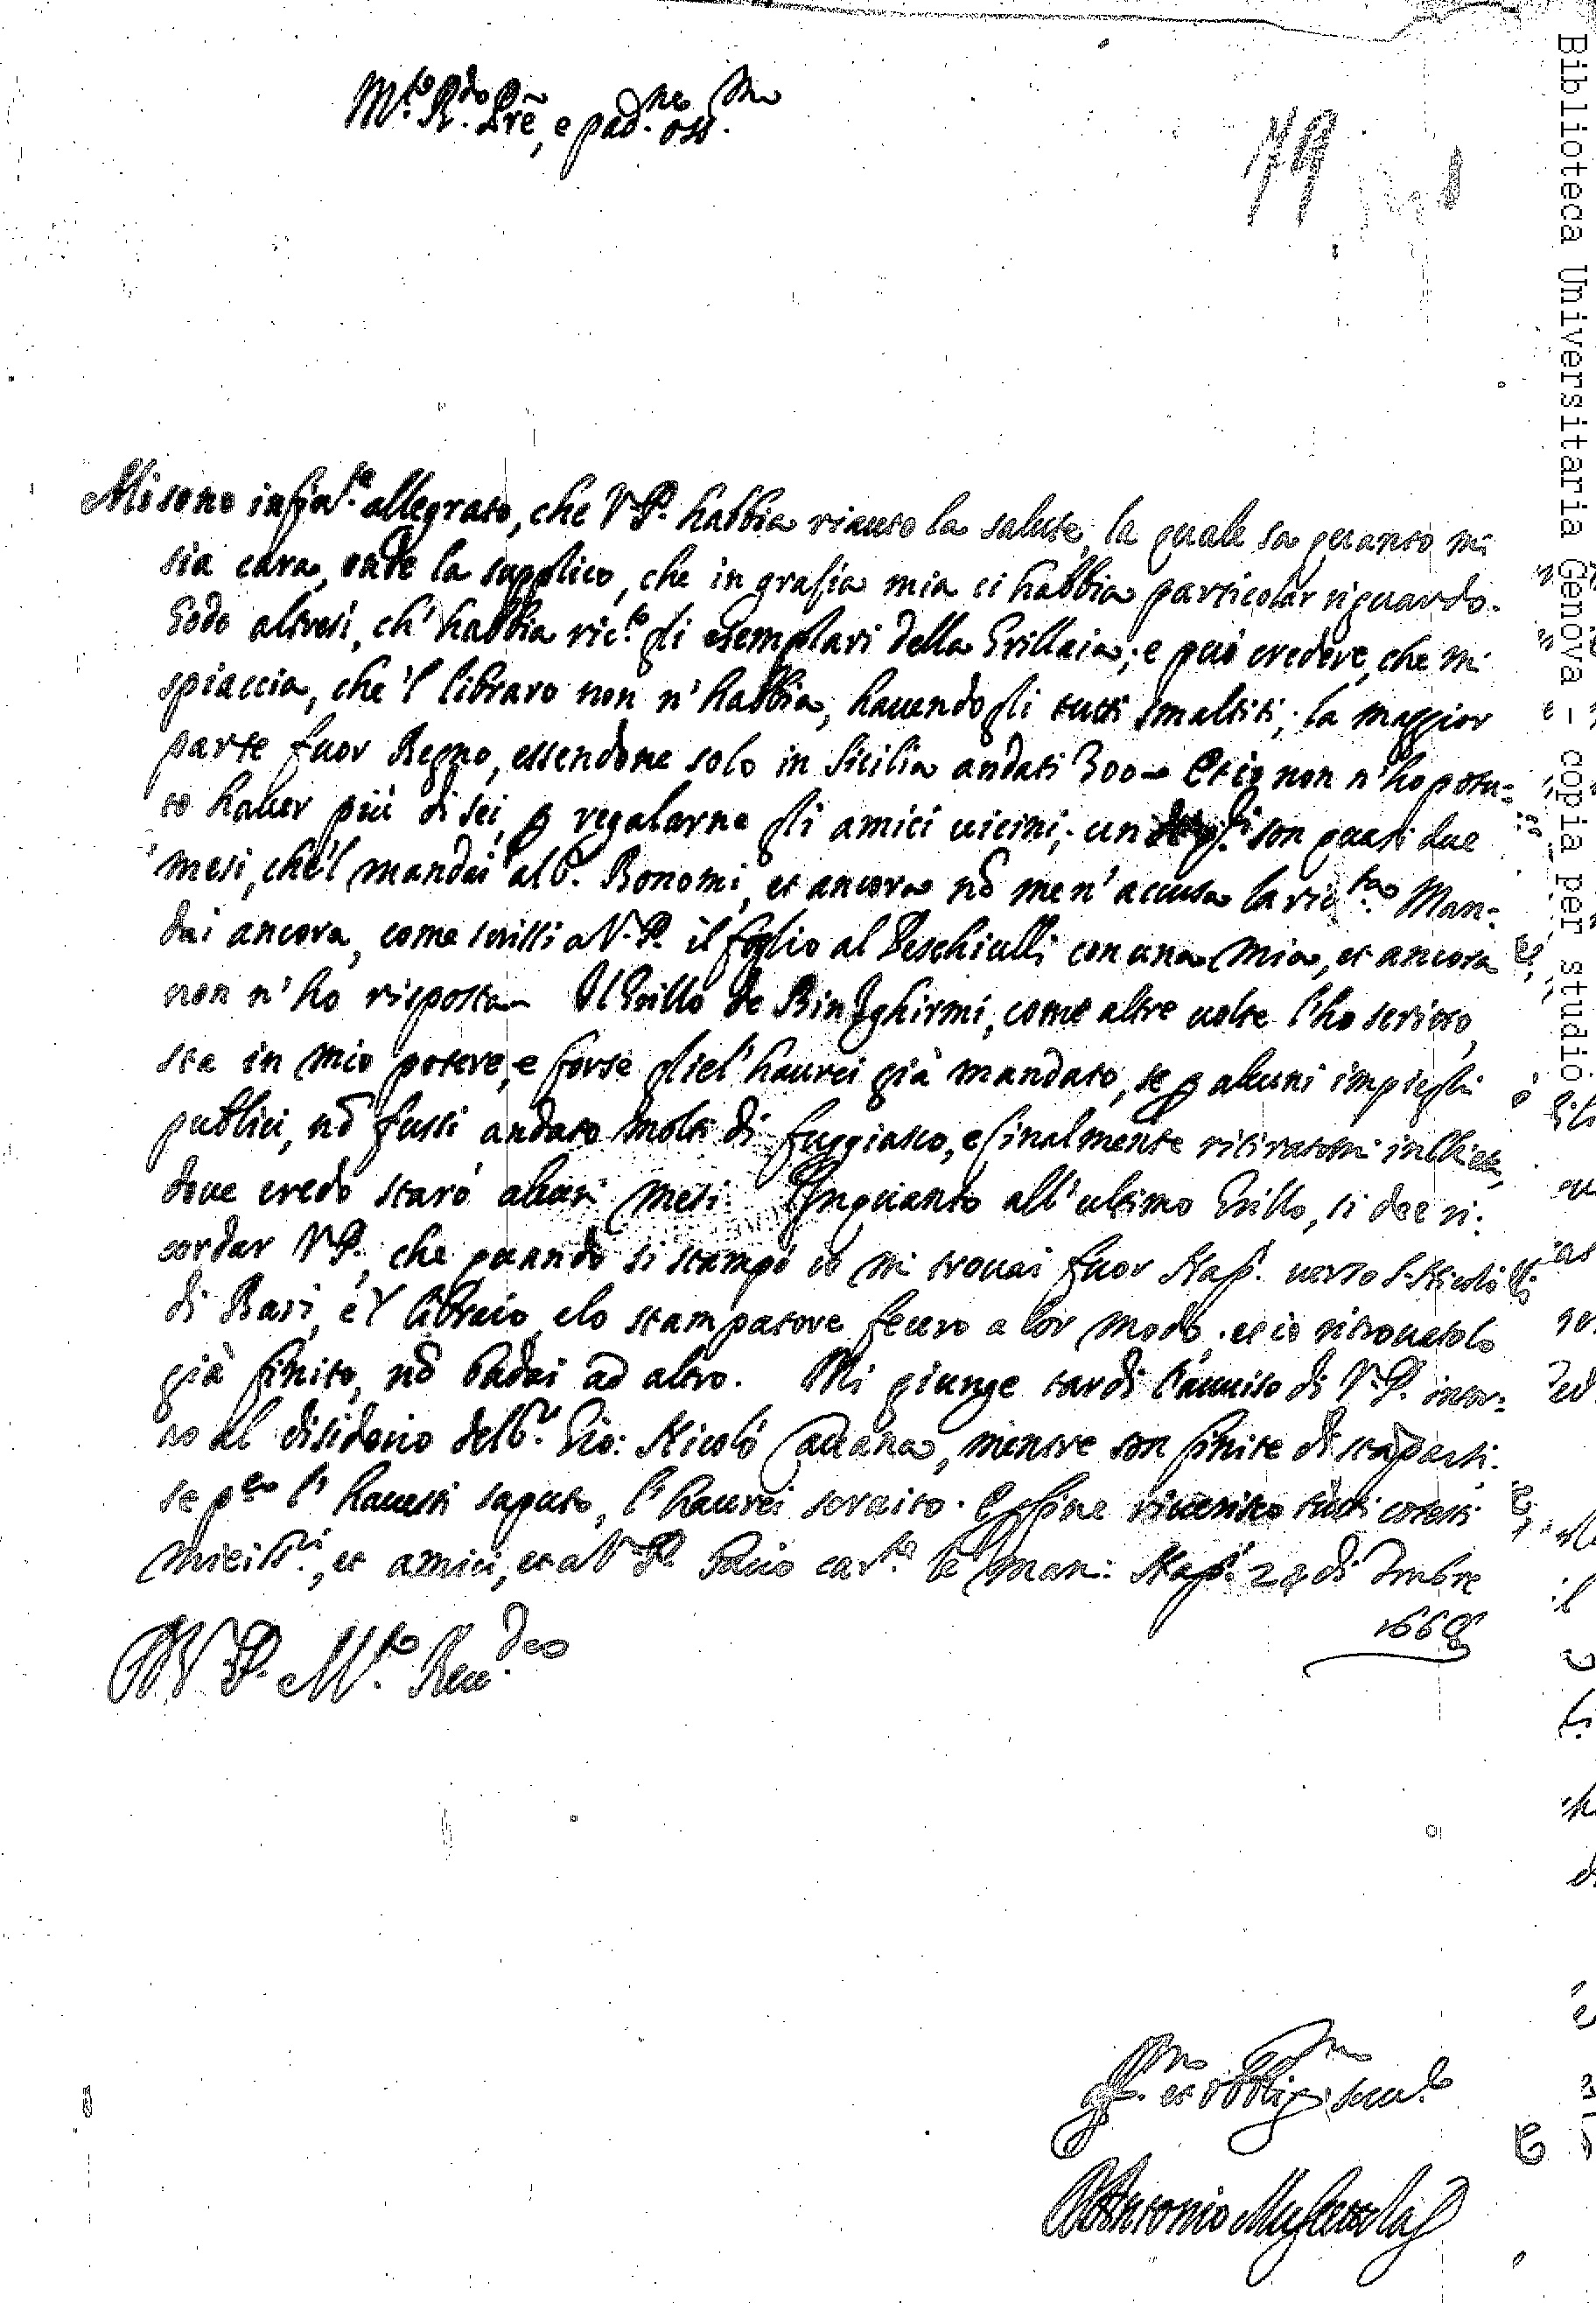 M.to R.do P̃re, e pad.ne oss.mo
79
Mi sono infin.te allegrato, che V.P. habbia riauto la salute, la quale sa quanto mi
sia cara, onde la supplico, che in grasia mia ci habbia particolar riguardo.
Godo altresi, ch'habbia ric.to gli esemplari della Grillaia; e può credere, che mi
spiaccia, che 'l libraro non n'habbia, hauendogli tutti smaltiti; la maggior
parte fuor Regno, essendone solo in Sicilia andati 300. Et io non n'ho potu=
to hauer più di sei, p regalarne gli amici uicini; un son quasi due
mesi, che 'l mandai al P. Bonomi, et ancora nõ me n'accusa la ric.ta Man=
dai ancora, come scrissi a V.P. il foglio al Peschiulli con una mia, et ancora
non n'ho risposta. Il Grillo de Bin Ighirmi, come altre uolte l'ho scritto,
sta in mio potere, e forse gliel'haurei già mandato, se p alcuni impieghi
publici, nõ fussi andato molti dì fuggiasco, e finalmente ritiratomi in Chieti,
doue credo starò alcuni mesi. Inquanto all'ultimo Grillo, si dee ri=
cordar V.P., che quando si stampò io mi trouai fuor Nap. uerso S. Nicolò
di Bari, e 'l libraio, e lo stampatore fecero a lor modo, et io ritrouatolo
già finito, nõ badai ad altro. Mi giunge tardi l'auuiso di V.P. intor=
no al disiderio del S.r Gio: Nicolò Cauana, mentre son finite di stãparsi.
se p.ma l'hauessi saputo, l'haurei seruito. E p fine riuerisco tutti cotesti
miei S.ri, et amici, et a V.P. bacio car.te le mani: Nap. 28 di 9mbre
1668
D V.P. M.to Reu.da
Aff.mo et obblig.mo seru.e
Antonio Muscettola
Biblioteca Universitaria Genova - copia per studio